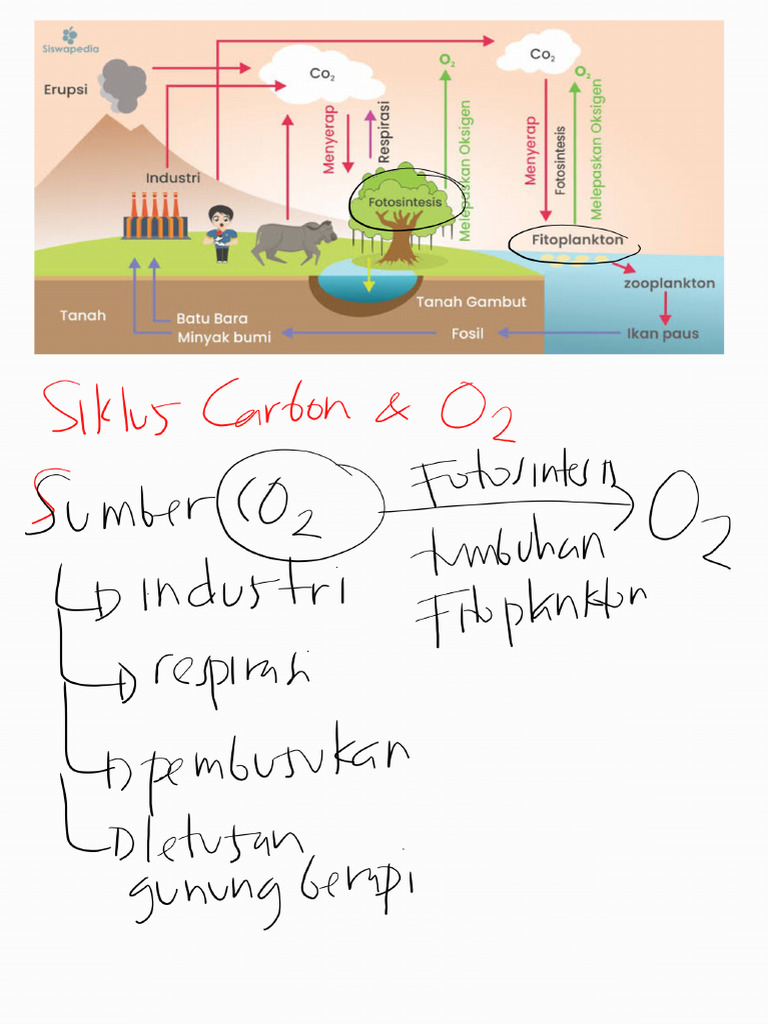 Siswapedia
Erupsi
Co₂
Co₂
O₂
O₂
Industri
Menyerap
Respirasi
Melepaskan Oksigen
Menyerap
Fotosintesis
Melepaskan Oksigen
Fotosintesis
Fitoplankton
zooplankton
Ikan paus
Tanah
Batu Bara
Minyak bumi
Fosil
Tanah Gambut
Siklus Carbon & O₂
Sumber CO₂ Fotosintesis O₂
tumbuhan
Fitoplankton
industri
respirasi
pembusukan
letusan
gunung berapi